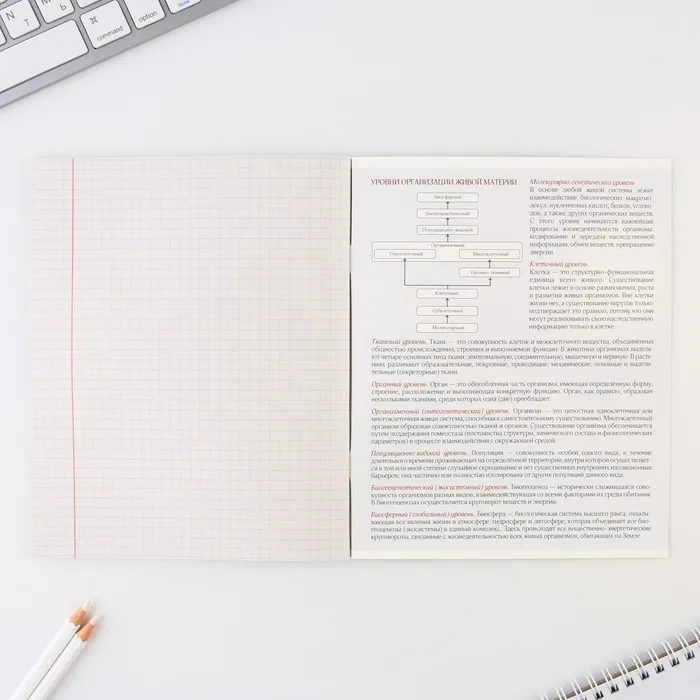 N
Т
M
Ь
⌘
command
option
Home
УРОВНИ ОРГАНИЗАЦИИ ЖИВОЙ МАТЕРИИ
Биосферный
Биогеоценотический
Популяционно-видовой
Организменный
Одноклеточный
Многоклеточный
Органно-тканевый
Клеточный
Субклеточный
Молекулярный
Молекулярно-генетический уровень
В основе любой живой системы лежит
взаимодействие биологических макромо-
лекул: нуклеиновых кислот, белков, углево-
дов, а также других органических веществ.
С этого уровня начинаются важнейшие
процессы жизнедеятельности организма:
кодирование и передача наследственной
информации, обмен веществ, превращение
энергии.
Клеточный уровень
Клетка — это структурно-функциональная
единица всего живого. Существование
клетки лежит в основе размножения, роста
и развития живых организмов. Вне клетки
жизни нет, а существование вирусов только
подтверждает это правило, потому что они
могут реализовывать свою наследственную
информацию только в клетке.
Тканевый уровень. Ткань — это совокупность клеток и межклеточного вещества, объединённых
общностью происхождения, строения и выполняемой функции. В животных организмах выделя-
ют четыре основных типа ткани: эпителиальную, соединительную, мышечную и нервную. В расте-
ниях различают образовательные, покровные, проводящие, механические, основные и выдели-
тельные (секреторные) ткани.
Органный уровень. Орган — это обособленная часть организма, имеющая определённую форму,
строение, расположение и выполняющая конкретную функцию. Орган, как правило, образован
несколькими тканями, среди которых одна (две) преобладает.
Организменный (онтогенетический) уровень. Организм — это целостная одноклеточная или
многоклеточная живая система, способная к самостоятельному существованию. Многоклеточный
организм образован совокупностью тканей и органов. Существование организма обеспечивается
путем поддержания гомеостаза (постоянства структуры, химического состава и физиологических
параметров) в процессе взаимодействия с окружающей средой.
Популяционно-видовой уровень. Популяция — совокупность особей одного вида, в течение
длительного времени проживающих на определённой территории, внутри которой осуществляет-
ся в той или иной степени случайное скрещивание и нет существенных внутренних изоляционных
барьеров; она частично или полностью изолирована от других популяций данного вида.
Биогеоценотический (экосистемный) уровень. Биогеоценоз — исторически сложившаяся сово-
купность организмов разных видов, взаимодействующая со всеми факторами их среды обитания.
В биогеоценозах осуществляется круговорот веществ и энергии.
Биосферный (глобальный) уровень. Биосфера — биологическая система высшего ранга, охваты-
вающая все явления жизни в атмосфере, гидросфере и литосфере, которая объединяет все био-
геоценозы (экосистемы) в единый комплекс. Здесь происходят все вещественно-энергетические
круговороты, связанные с жизнедеятельностью всех живых организмов, обитающих на Земле.